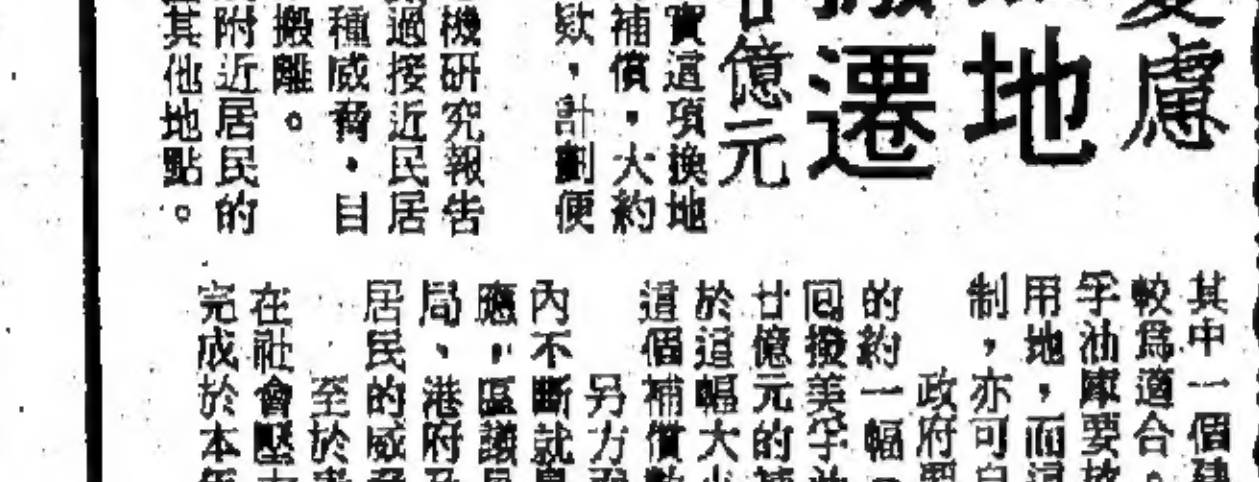 慮
地
遷
億元
實這項換地
補償,大約
欵,計劃便
機研究報告
過接近民居
種威脅,目
搬離。
附近居民的
其他地點。
其中一個建
較爲適合。
孚油庫要放
用地,而這
制,亦可自
政府
的約一幅
囘撥美孚
廿億元的
於這幅大
這個補償數
另方
內不斷就
應,區議
局、港府
居民的威
至於
在社會壓
完成於本年